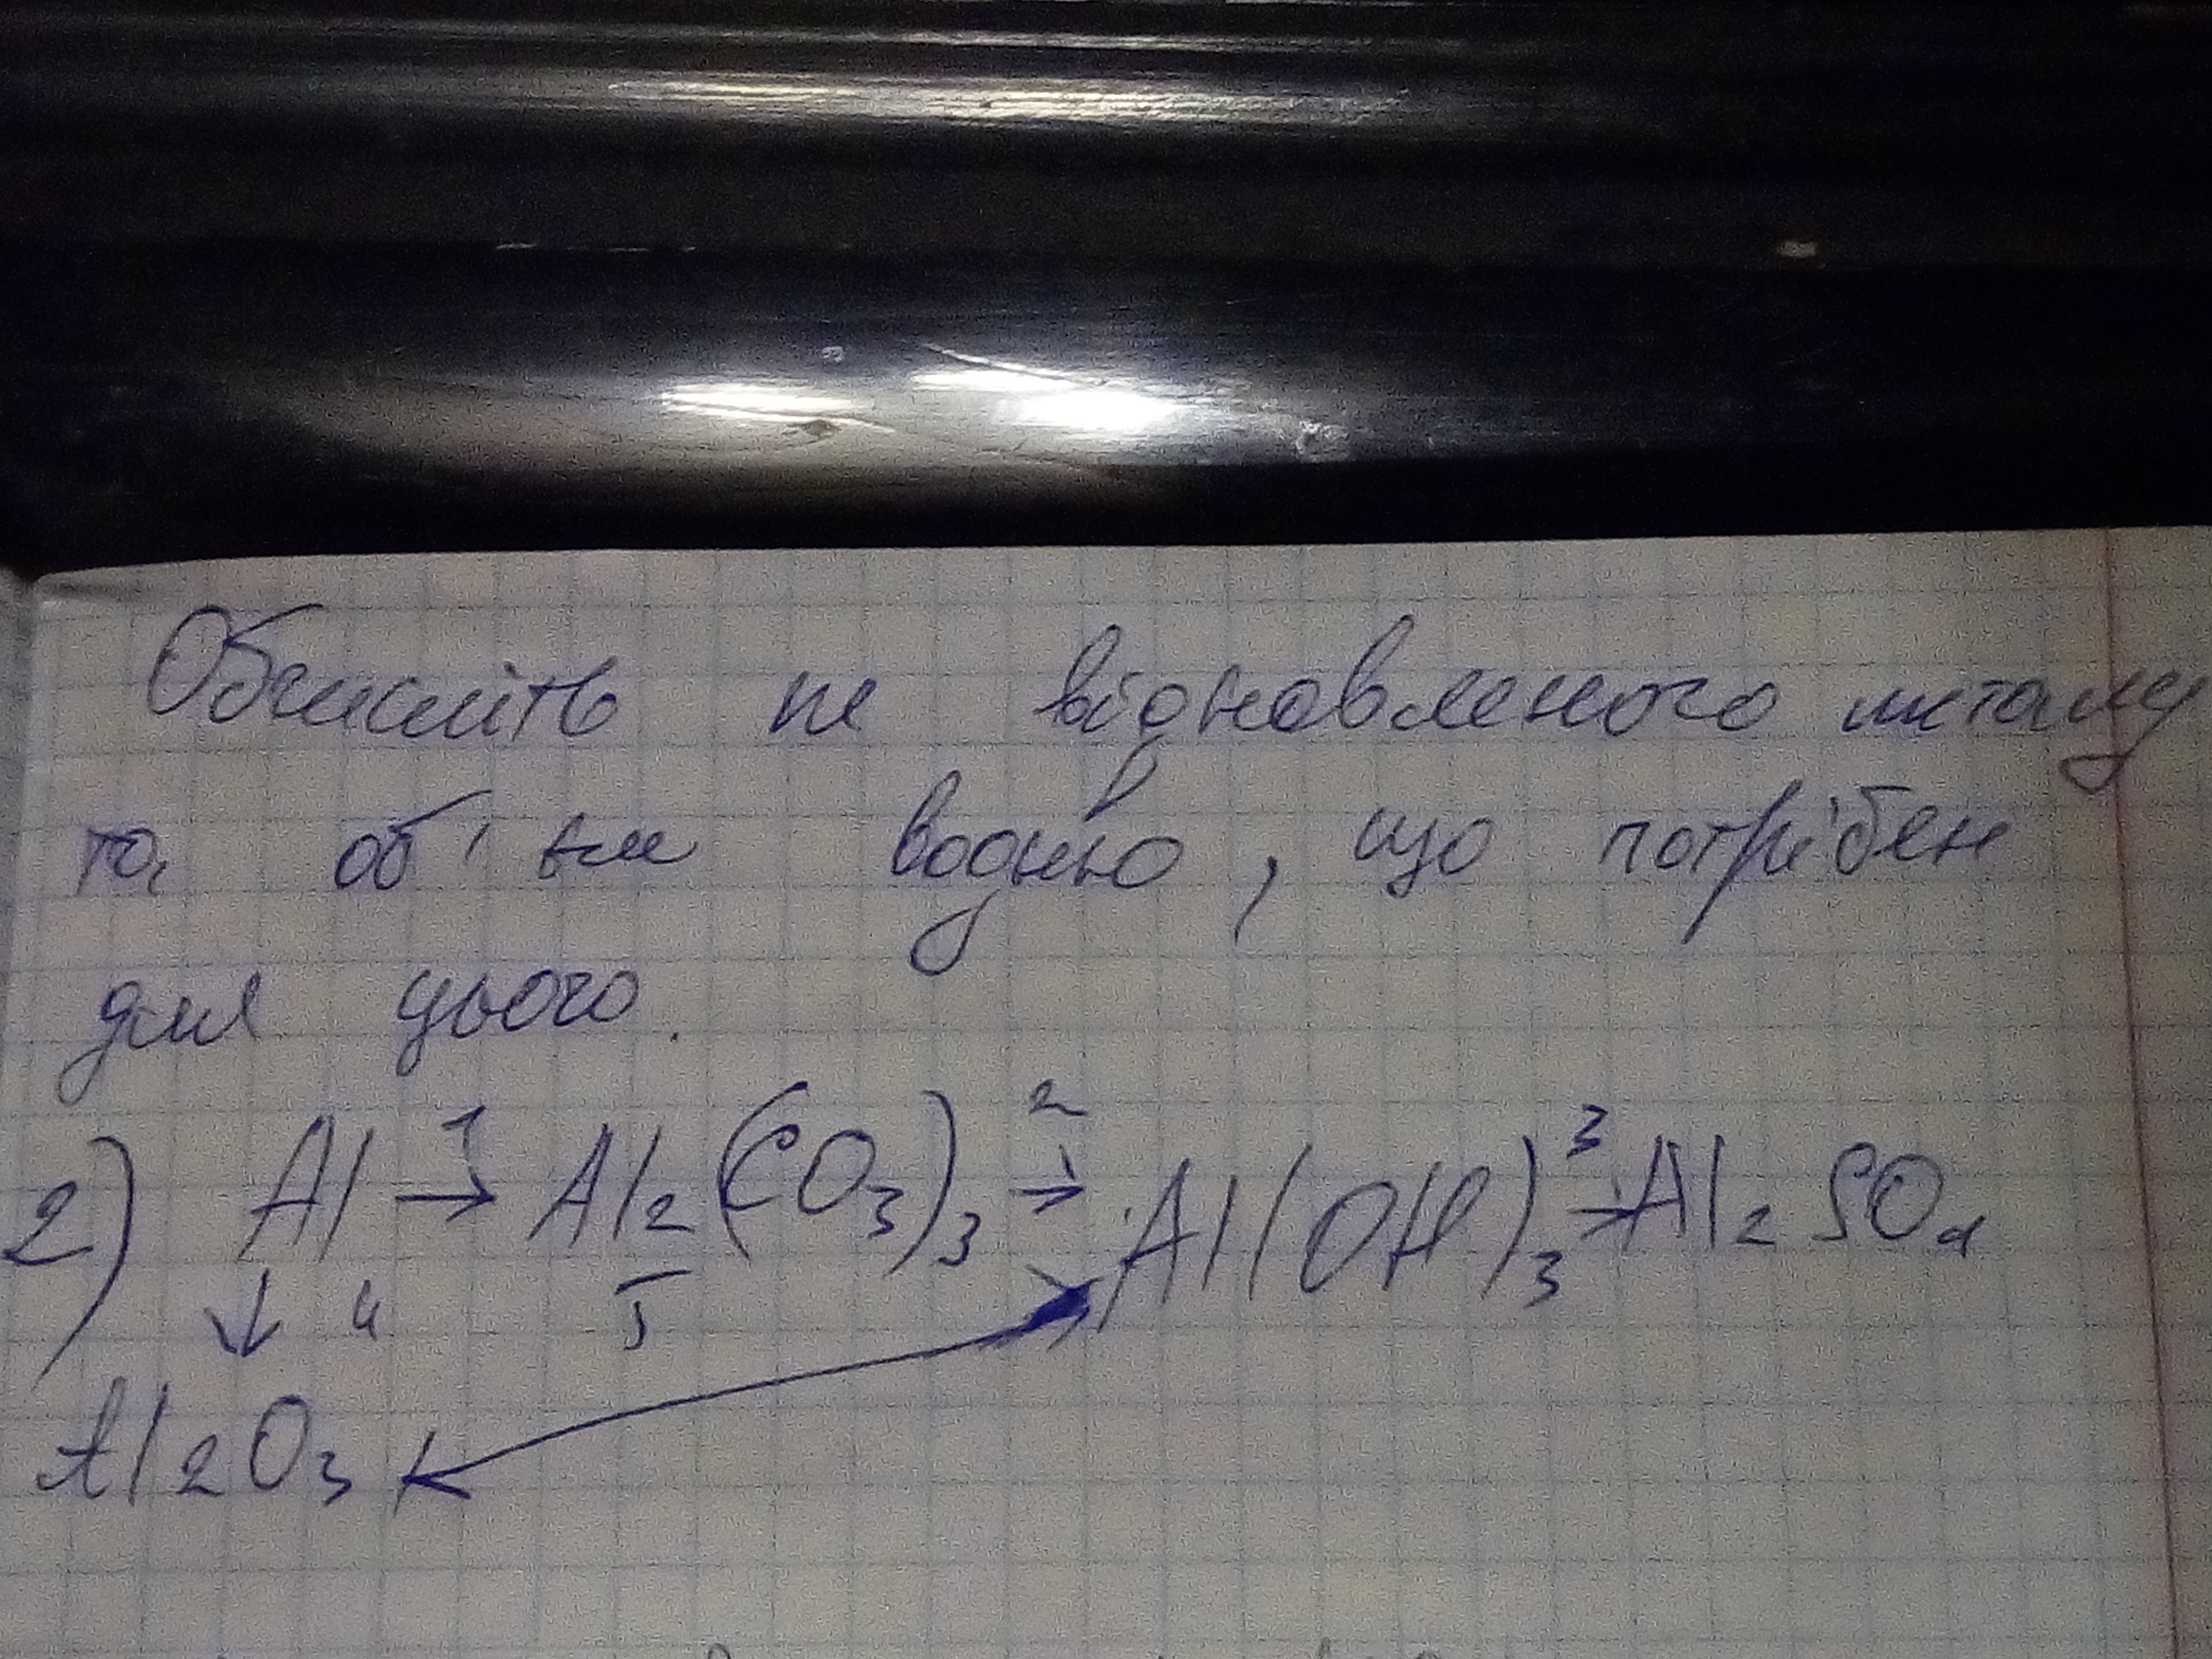 Обчисліть не відновленого металу
та об'єм водню, що потрібен
для цього.
2) Al →1 Al2(CO3)3 →2 Al(OH)3 →3 Al2SO4
↓ 4 5
Al2O3 ↔